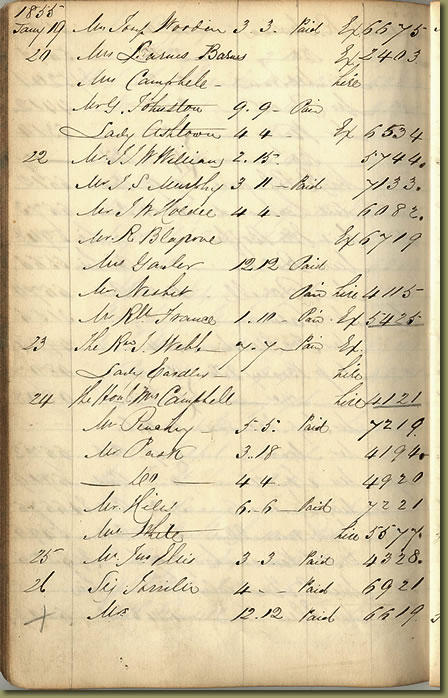 1855
Jany 19 Mr Josh Wooden 3.3. Paid Ex 6575
20 Mrs Barnes Barnes Ex 2403
Mrs Campbell - hire
Mr G. Johnston 9.9 - Paid
Lady Ashtown 4 4 - Ex 6534
22 Mr J W William 2.15. 5744.
Mr J. S. Murphy 3 11 - Paid 7133.
Mr J W Holder 4 4. 6082.
Mr R Blagrove Ex 6719
Mrs Gawler 12.12 Paid
Mr Nesbit Paid hire 4115
Mr Robt France 1.10 - Paid Ex 5425
23 The Rev J. Webb - 7.7 - Paid Ex.
Lady hire
24 The Honl Mrs Campbell hire 4121
Mr 5.5. Paid 7219.
Mr Pask 3.18 4194.
— Do — 4 4 - 4920
Mr Hiles 6.6 - Paid 7221
Mrs White hire 5577.
25 Mr Jas Ellis 3.3 Paid 4328.
26 Sig 4 - - Paid 6921
+ Mr 12.12 Paid 6619